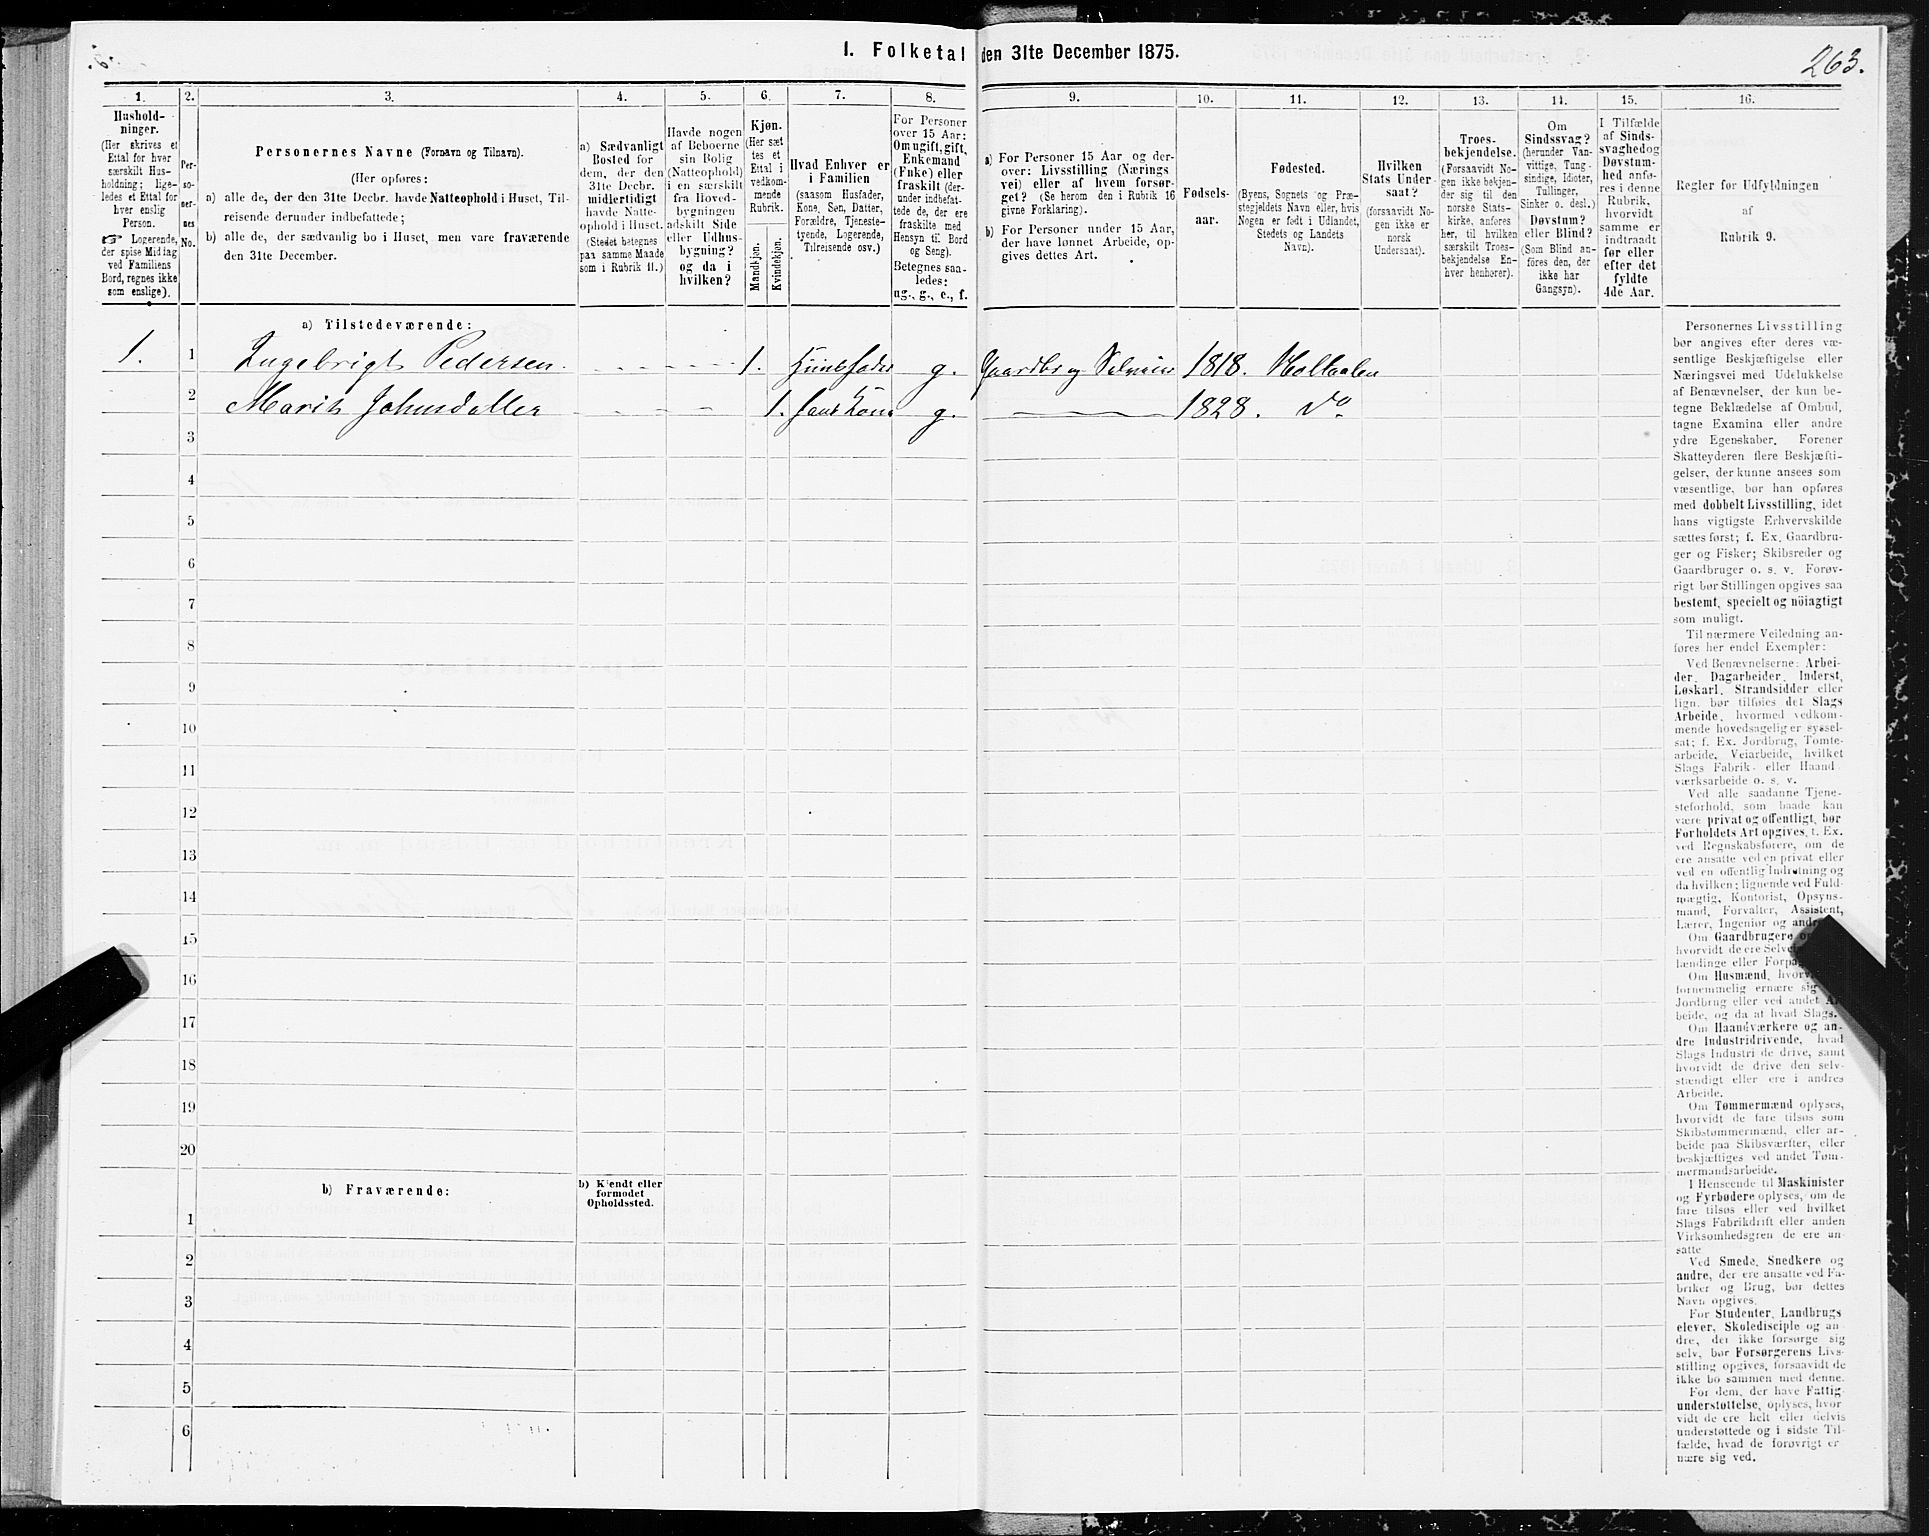 I. Folketal den 31te December 1875.
263.
1.
2.
3.
4.
5.
6.
7.
8.
9.
10.
11.
12.
13.
14.
15.
16.
Hushold-
ninger.
(Her skrives et
Ettal for hver
særskilt Hus-
holdning; lige-
ledes et Ettal for
hver enslig
Person.
☞ Logerende,
der spise Middag
ved Familiens
Bord, regnes ikke
som enslige).
Per-
so-
ner-
nes
No.
Personernes Navne (Fornavn og Tilnavn).
(Her opføres:
a) alle de, der den 31te Decbr. havde Natteophold i Huset, Til-
reisende derunder indbefattede;
b) alle de, der sædvanlig bo i Huset, men vare fraværende
den 31te December.
a) Sædvanligt
Bosted for
dem, der den
31te Decbr.
midlertidigt
havde Natte-
ophold i Huset.
(Stedet betegnes
paa samme Maade
som i Rubrik 11.)
Havde nogen
af Beboerne
sin Bolig
(Natteophold)
i en særskilt
fra Hoved-
bygningen
adskilt Side
eller Udhus-
bygning?
og da i
hvilken?
Kjøn.
(Her sæt
tes et
Ettal i
vedkom-
mende
Rubrik.
Mandkjøn.
Kvindekjøn.
Hvad Enhver er
i Familien
(saasom Husfader,
Kone, Søn, Datter,
Forældre, Tjeneste-
tyende, Logerende,
Tilreisende osv.)
For Personer
over 15 Aar:
Om ugift, gift,
Enkemand
(Enke) eller
fraskilt (der-
under indbefat-
tede de, der ere
fraskilte med
Hensyn til Bord
og Seng).
Betegnes saa-
ledes:
ug., g., e., f.
a) For Personer 15 Aar og der-
over: Livsstilling (Nærings
vei) eller af hvem forsør-
get? (Se herom den i Rubrik 16
givne Forklaring).
b) For Personer under 15 Aar,
der have lønnet Arbeide, op-
gives dettes Art.
Fødsels-
aar.
Fødested.
(Byens, Sognets og Præ-
stegjeldets Navn eller, hvis
Nogen er født i Udlandet,
Stedets og Landets
Navn).
Hvilken
Stats Under-
saat?
(forsaavidt No-
gen ikke er
norsk
Undersaat).
Troes-
bekjendelse.
(Forsaavidt No-
gen ikke bekjen-
der sig til den
norske Stats-
kirke, anføres
her, til hvilken
særskilt Troes-
bekjendelse En-
hver henhører).
Om
Sindssvag?
(herunder Van-
vittige, Tung-
sindige, Idioter,
Tullinger,
Sinker o. desl.)
Døvstum?
eller Blind?
(Som Blind an-
føres den, der
ikke har
Gangsyn).
I Tilfælde
af Sinds-
svaghed og
Døvstum-
hed anfø-
res i denne
Rubrik,
hvorvidt
samme er
indtraadt
før eller
efter det
fyldte
4de Aar.
Regler for Udfyldningen
af
Rubrik 9.
a) Tilstedeværende:
1. 1 Ingebrigt Pedersen 1. g. 1818. Holtaalen
2 Marit Johnsdatter 1. g. 1828. Do
3
4
5
6
7
8
9
10
11
12
13
14
15
16
17
18
19
20
b) Fraværende:
b) Kjendt eller
formodet
Opholdssted.
1
2
3
4
5
6
Personernes Livsstilling
bør angives efter deres væ-
sentlige Beskjæftigelse eller
Næringsvei med Udelukkelse
af Benævnelser, der kun be-
tegne Beklædelse af Ombud,
tagne Examina eller andre
ydre Egenskaber. Forener
Skatteyderen flere Beskjæfti-
gelser, der kunne ansees som
væsentlige, bør han opføres
med dobbelt Livsstilling, idet
hans vigtigste Erhvervskilde
sættes først; f. Ex. Gaardbru-
ger og Fisker; Skibsreder og
Gaardbruger o. s. v. Forøv-
rigt bør Stillingen opgives saa
bestemt, specielt og nöiagtigt
som muligt.
Til nærmere Veiledning an-
føres her endel Exempler:
Ved Benævnelserne: Arbei-
der, Dagarbeider, Inderst,
Løskarl, Strandsidder eller
lign. bør tilføies det Slags
Arbeide, hvormed vedkom-
mende hovedsagelig er syssel-
sat; f. Ex. Jordbrug, Tomte-
arbeide, Veiarbeide, hvilket
Slags Fabrik- eller Haand-
værksarbeide o. s. v.
Ved alle saadanne Tjene-
steforhold, som baade kan
være privat og offentligt, bør
Forholdets Art opgives, t. Ex.
ved Regnskabsførere, om de
ere ansatte ved en privat eller
ved en offentlig Indretning og
da hvilken; lignende ved Fuld-
mægtig, Kontorist, Opsyns-
mand, Forvalter, Assistent,
Lærer, Ingeniør og
Om Gaardbrugere
hvorvidt de ere
lændinge eller
Om Husmænd,
fornemmelig ernære sig
Jordbrug eller ved andet
beide, og da at hvad Slags.
Om Haandværkere og an-
dre Industridrivende, hvad
Slags Industri de drive, samt
hvorvidt de drive den selv-
stændigt eller ere i andres
Arbeide.
Om Tømmermænd oplyses,
hvorvidt de fare tilsøs som
Skibstømmermænd, eller ar-
beide paa Skibsværfter, eller
beskjæftiges ved andet Tøm-
mermandsarbeide.
I Henseende til Maskinister
og Fyrbødere oplyses, om de
fare tilsøs eller ved hvilket
Slags Fabrikdrift eller anden
Virksomhedsgren de ere an-
satte
Ved Smede, Snedkere og
andre, der ere ansatte ved Fa-
briker og Brug, bør dettes
Navn opgives.
For Studenter, Landbrugs-
elever, Skoledisciple og an-
dre, der ikke forsørge sig
selv, bør Forsørgerens Livs-
stilling opgives, forsaavidt de
ikke bo sammen med denne.
For dem, der have Fattig-
understøttelse, oplyses, hvor-
vidt de ere helt eller delvis
understøttede og i sidste Til-
fælde, hvad de forøvrigt er-
nære sig ved.